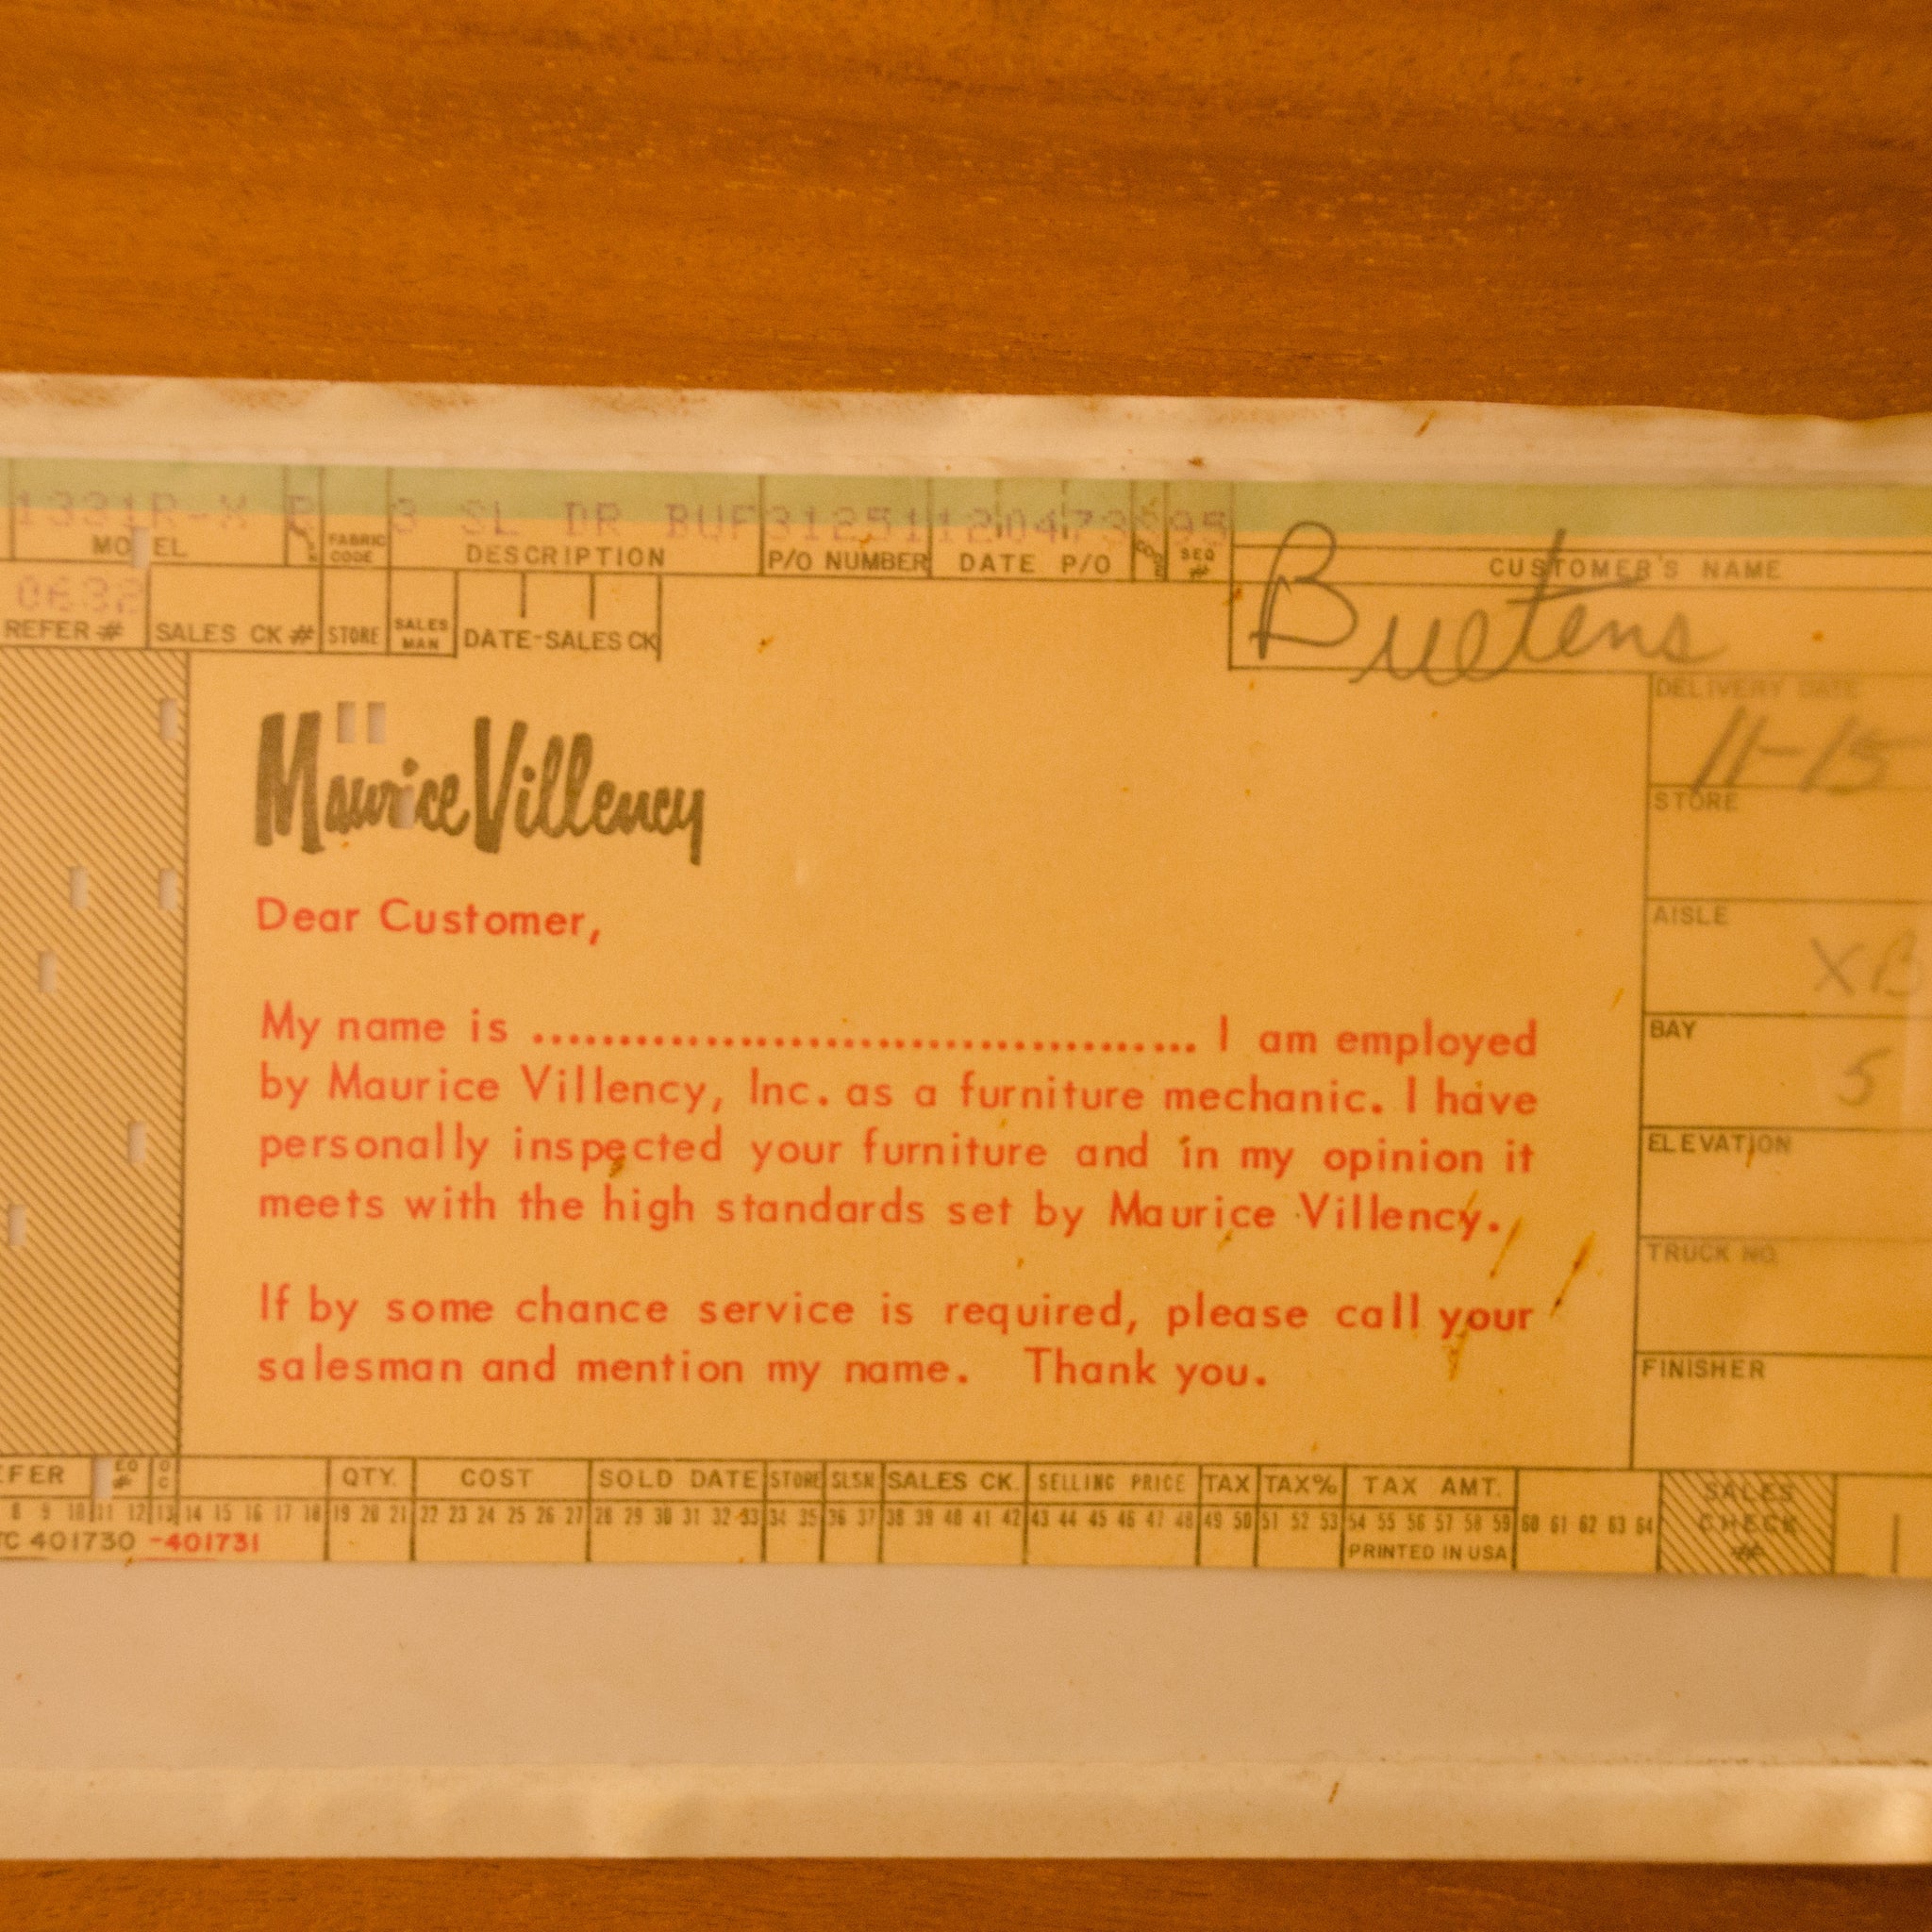 1331R-X R 3 SL DR BUF 31251 120473 95
MODEL FABRIC CODE DESCRIPTION P/O NUMBER DATE P/O CODE SEQ # CUSTOMER'S NAME
0632 Buetens
REFER # SALES CK # STORE SALES MAN DATE-SALES CK
DELIVERY DATE
11-15
Maurice Villency
STORE
Dear Customer,
AISLE
XB
My name is ........................................ I am employed
BAY
by Maurice Villency, Inc. as a furniture mechanic. I have
5
personally inspected your furniture and in my opinion it
ELEVATION
meets with the high standards set by Maurice Villency.
TRUCK NO.
If by some chance service is required, please call your
salesman and mention my name. Thank you.
FINISHER
EFER QTY. COST SOLD DATE STORE SLSN SALES CK. SELLING PRICE TAX TAX% TAX AMT. SALES CHECK #
8 9 10 11 12 13 14 15 16 17 18 19 20 21 22 23 24 25 26 27 28 29 30 31 32 33 34 35 36 37 38 39 40 41 42 43 44 45 46 47 48 49 50 51 52 53 54 55 56 57 58 59 60 61 62 63 64
TC 401730 -401731 PRINTED IN USA